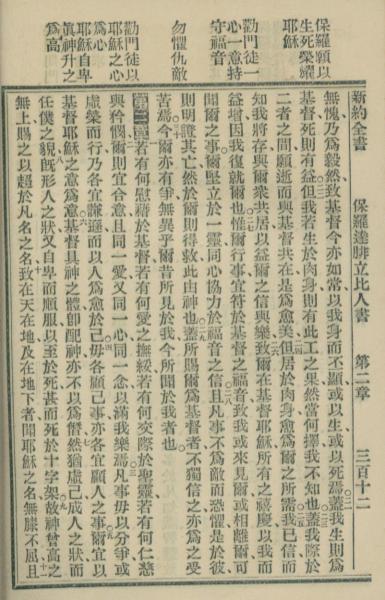 新約全書 保羅達腓立比人書 第二章 三百十二
保羅願以
生死榮耀
耶穌
勸門徒一
心一意持
守福音
勿懼仇敵
勸門徒以
耶穌之心
爲心
耶穌自卑
眞神升之
爲高
無愧乃爲毅然致基督今亦如常以我身而丕顯或以生或以死焉蓋我生則爲
基督死則有益但我若生於肉身則有此工之果然當何擇我不知也蓋我際於
二者之間願逝而與基督共在是爲愈美但居於肉身愈爲爾之所需我已信而
知我將存與爾衆共居以益爾之信與樂致爾在基督耶穌所有之禧慶以我而
益增因我復就爾也惟爾行事宜符於基督之福音致我或來見爾或相離爾可
聞爾之事爾堅立於一靈同心協力於福音之信且凡事不爲敵而恐懼是於彼
則明證其亡然於爾則得救此由神也蓋所賜爾爲基督者不獨信之亦爲之受
苦焉今爾亦有爭無異乎爾昔所見於我今所聞於我者也
第二章若有何慰藉於基督若有何愛之撫綏若有何交際於聖靈若有何仁慈
與矜憫爾則宜合意且同一愛又同一心同一念以滿我樂焉凡事毋以分爭或
虛榮而行乃各宜謙遜而以人爲愈於己毋各顧己事亦各宜顧人之事爾宜以
基督耶穌之意爲意基督具神之體卽配神亦不以爲僭然猶虛己成人之狀而
任僕之貌旣形人之狀又自卑而順服以至於死甚而死於十字架故神高之
無上賜之以超於凡名之名致在天在地及在地下者聞耶穌之名無膝不屈且